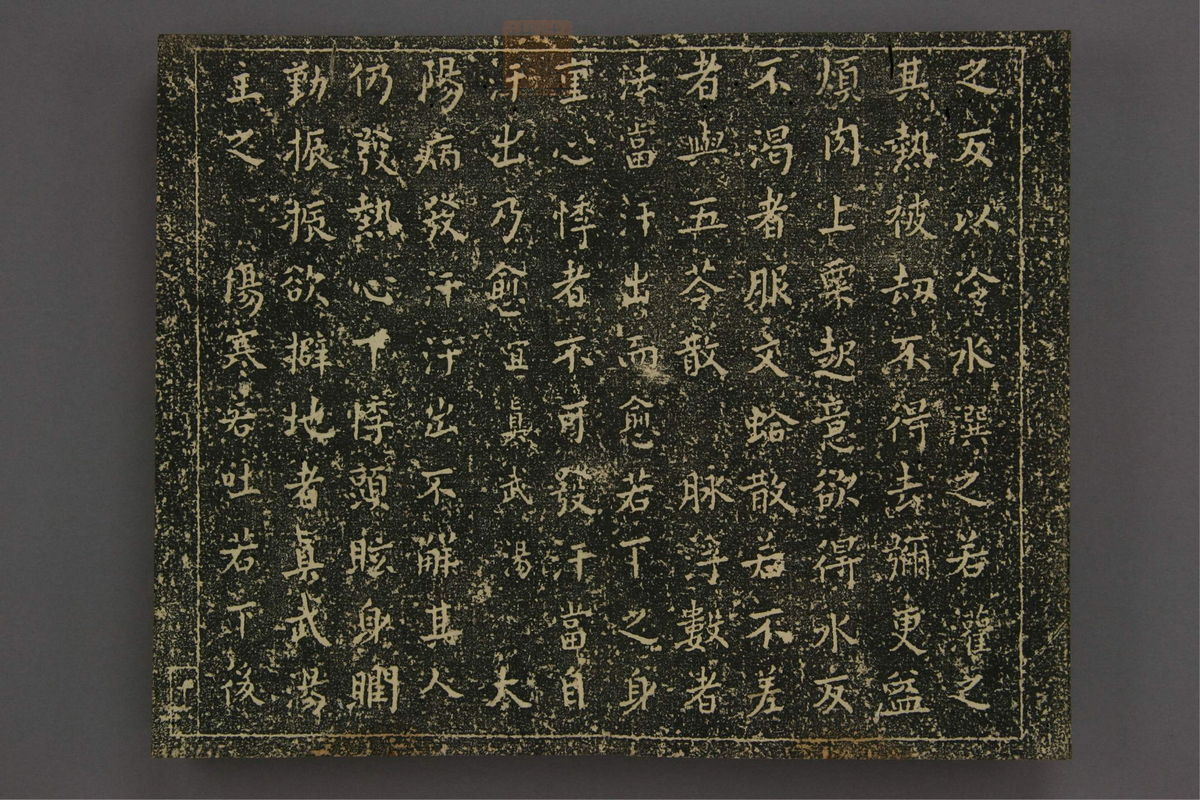 之反以冷水潠之若灌之
其熱被劫不得去彌更益
煩肉上粟起意欲得水反
不渴者服文蛤散若不差
者與五苓散 脉浮數者
法當汗出而愈若下之身
重心悸者不可發汗當自
汗出乃愈宜真武湯 太
陽病發汗汗出不解其人
仍發熱心下悸頭眩身瞤
動振振欲擗地者真武湯
主之 傷寒若吐若下後